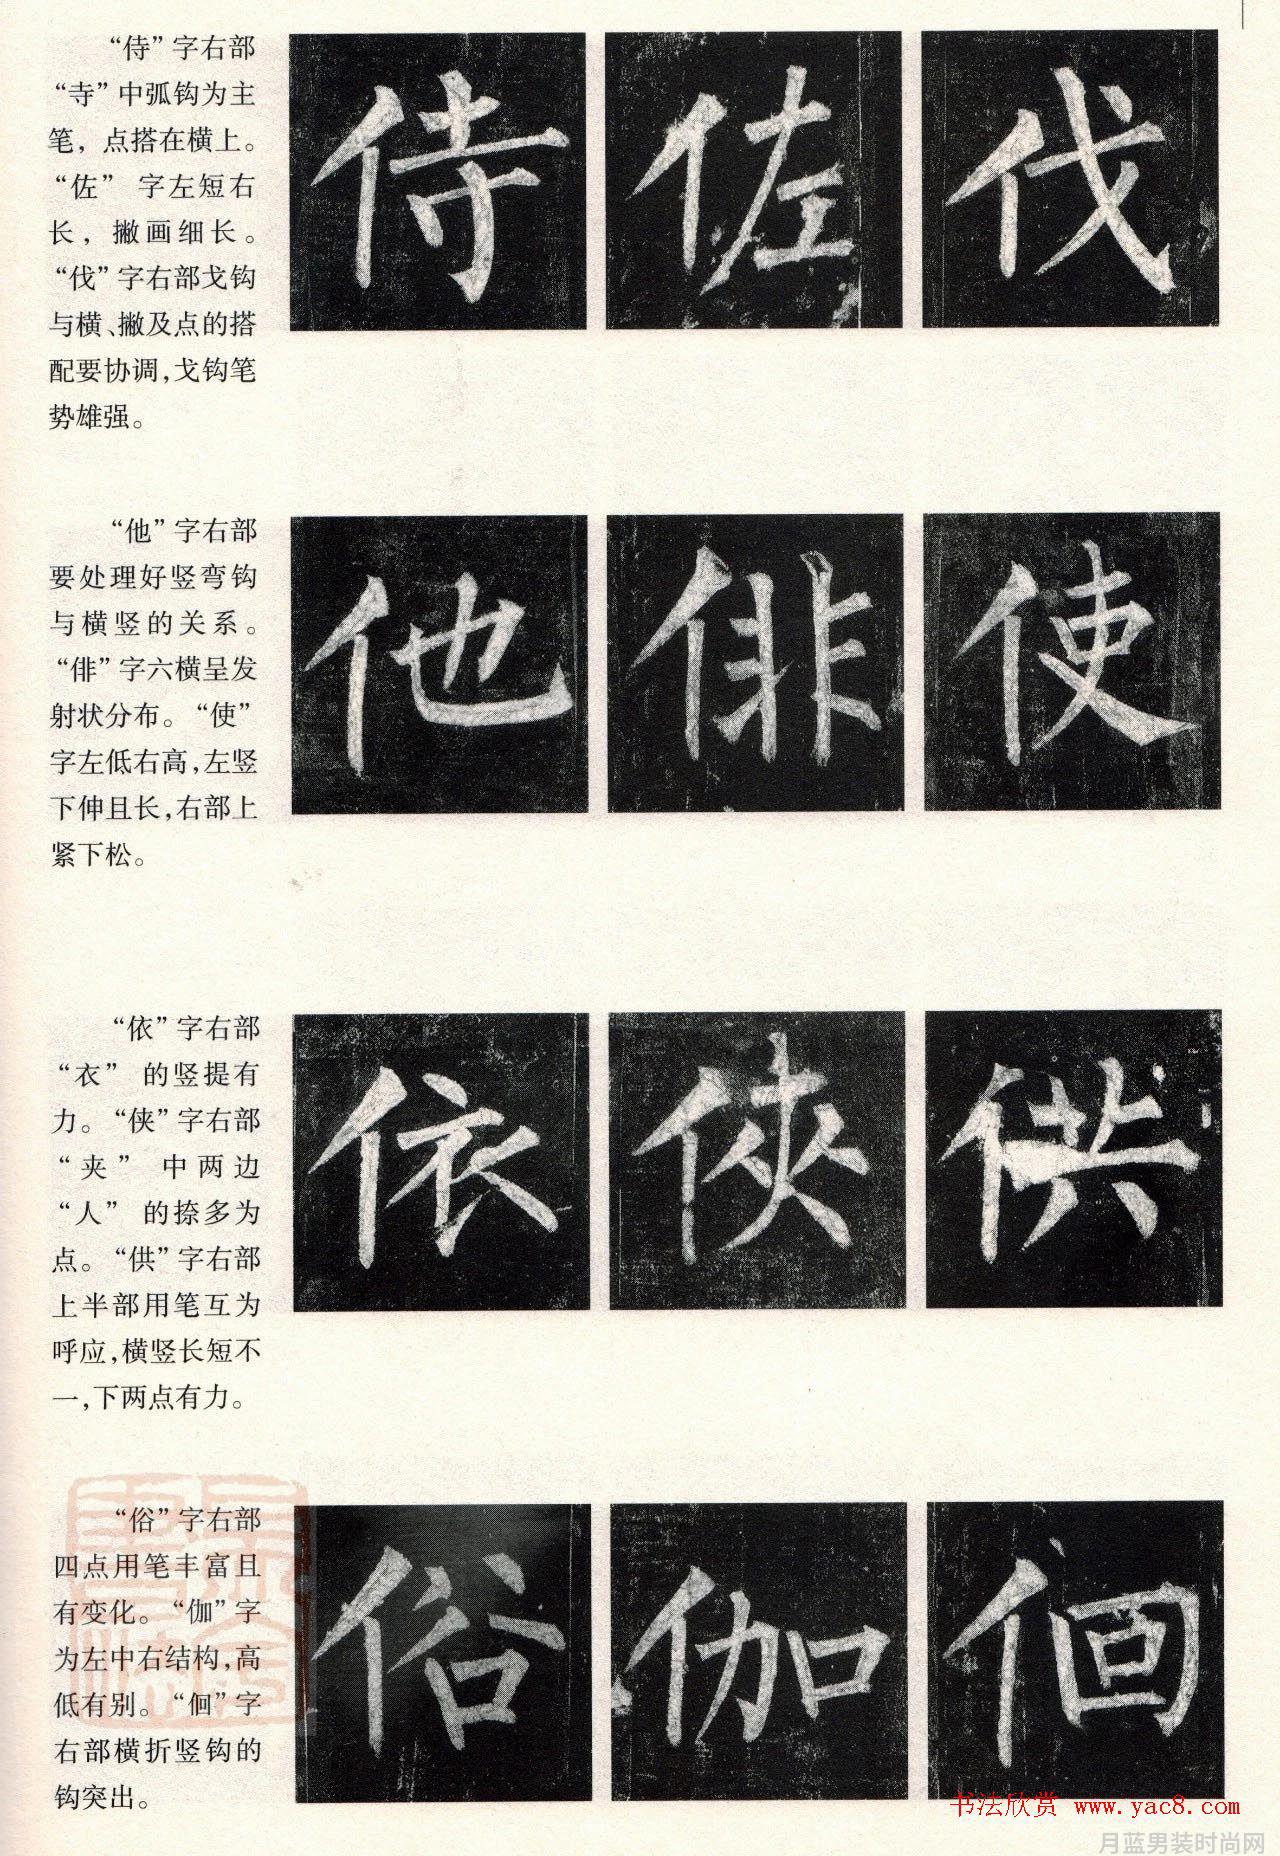 “侍”字右部
“寺”中弧钩为主
笔，点搭在横上。
“佐”字左短右
长，撇画细长。
“伐”字右部戈钩
与横、撇及点的搭
配要协调,戈钩笔
势雄强。
侍 佐 伐
“他”字右部
要处理好竖弯钩
与横竖的关系。
“俳”字六横呈发
射状分布。“使”
字左低右高,左竖
下伸且长,右部上
紧下松。
他 俳 使
“依”字右部
“衣”的竖提有
力。“侠”字右部
“夹”中两边
“人”的捺多为
点。“供”字右部
上半部用笔互为
呼应,横竖长短不
一,下两点有力。
依 俠 供
“俗”字右部
四点用笔丰富且
有变化。“伽”字
为左中右结构,高
低有别。“佪”字
右部横折竖钩的
钩突出。
俗 伽 佪
书法欣赏 www.yac8.com
月蓝男装时尚网